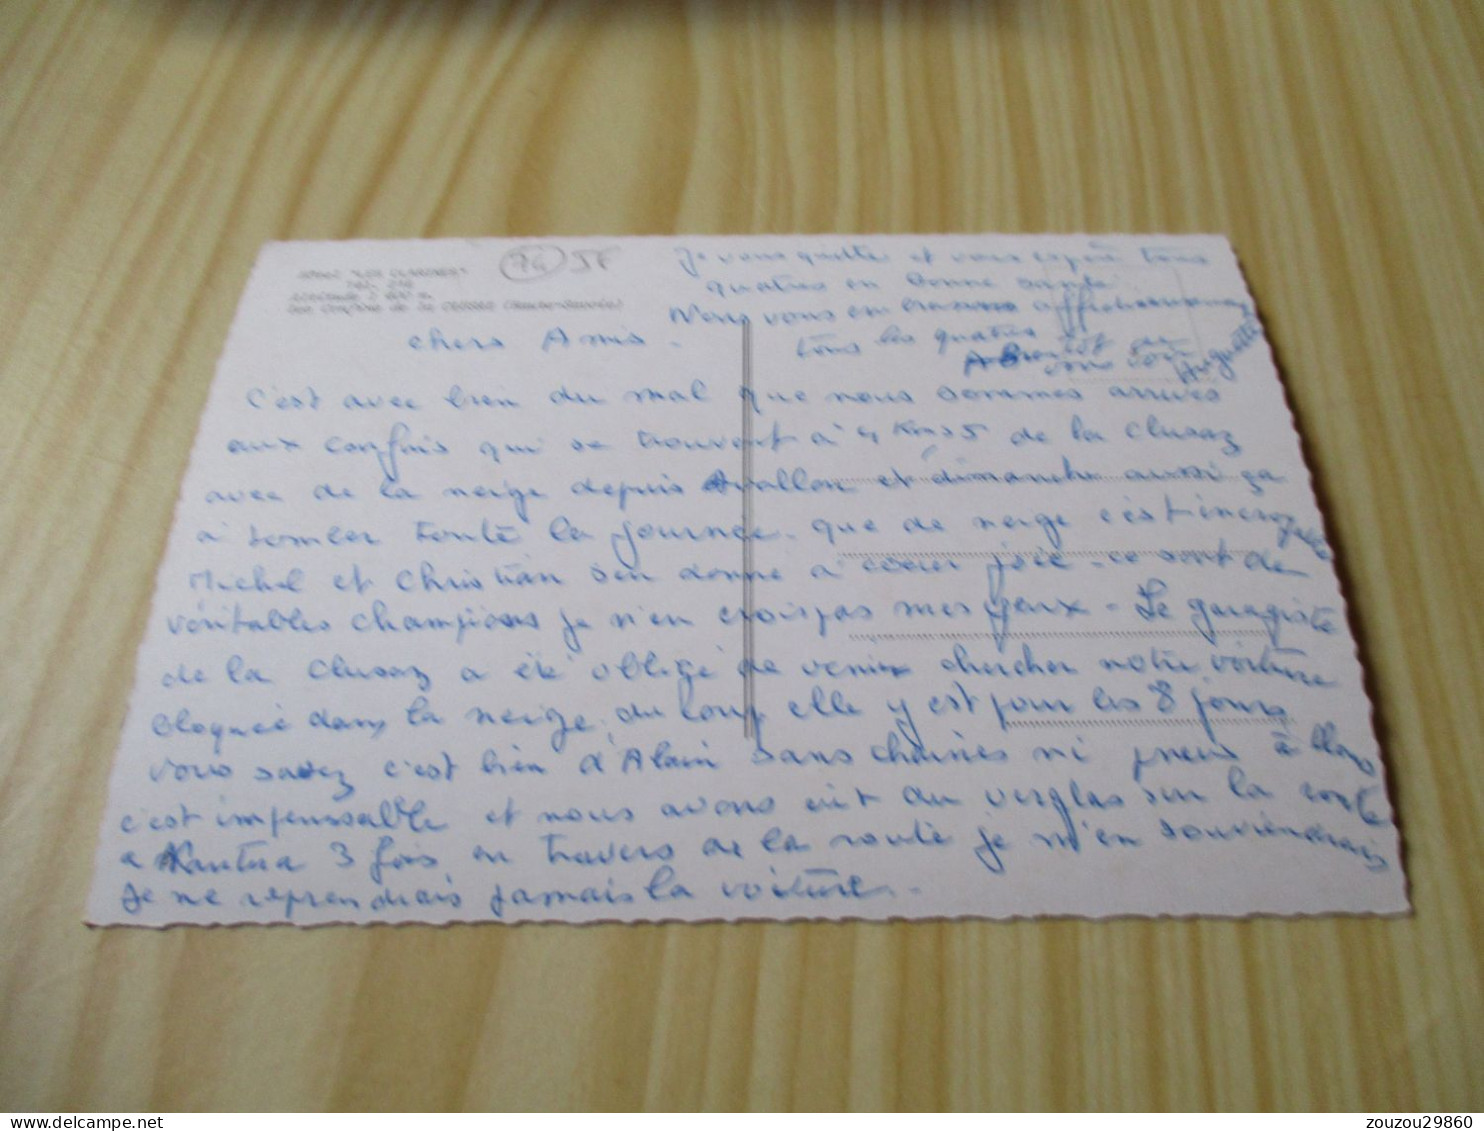 Hôtel "LES CLARINES"
Tél. 2
Altitude 1 400 m.
Les Confins de La Clusaz (Haute-Savoie)
74 5F
Chers Amis.
C'est avec bien du mal que nous sommes arrivés
aux confins qui se trouvent à 4 Kms 5 de la Clusaz
avec de la neige depuis Avallon et dimanche aussi ça
a tomber toute la journée. que de neige c'est incroyable
Michel et Christian s'en donne à coeur joie. ce sont de
véritables champions je n'en crois pas mes yeux - Le garagiste
de la Clusaz a été obligé de venir chercher notre voiture
bloquée dans la neige, du coup elle y est pour les 8 jours
vous savez c'est bien d'Alain sans chaines ni pneus à clous
c'est impensable et nous avons eut du verglas sur la route
a Nantua 3 fois en travers de la route je m'en souviendrais
Je ne reprendrais jamais la voiture.
Je vous quitte et vous espère tous
quatres en bonne santé.
Nous vous embrassons affectueusement
tous les quatres
A Bientôt de
vous voir
Huguette
zouzou29860